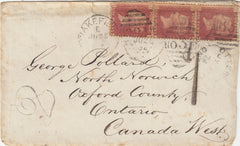 George Pollard,
North Norwich
Oxford County
Ontario
Canada West